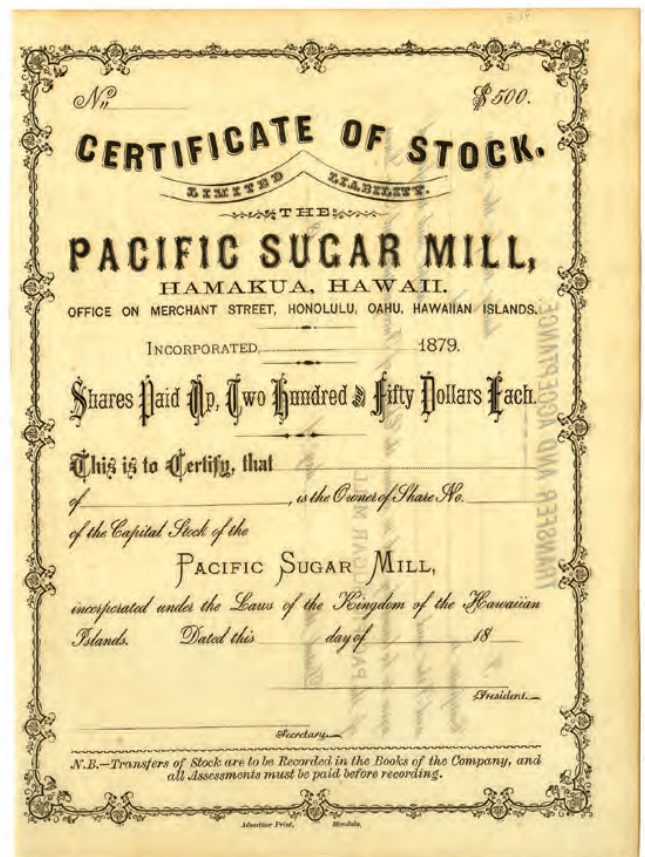 No. $500.
CERTIFICATE OF STOCK.
LIMITED LIABILITY.
THE
PACIFIC SUGAR MILL,
HAMAKUA, HAWAII.
OFFICE ON MERCHANT STREET, HONOLULU, OAHU, HAWAIIAN ISLANDS.
INCORPORATED, 1879.
Shares Paid Up, Two Hundred and Fifty Dollars Each.
This is to Certify, that
of , is the Owner of Share No.
of the Capital Stock of the
PACIFIC SUGAR MILL,
incorporated under the Laws of the Kingdom of the Hawaiian
Islands. Dated this day of 18
President.
Secretary.
N.B.—Transfers of Stock are to be Recorded in the Books of the Company, and
all Assessments must be paid before recording.
Advertiser Print, Honolulu.
TRANSFER AND ACCEPTANCE.